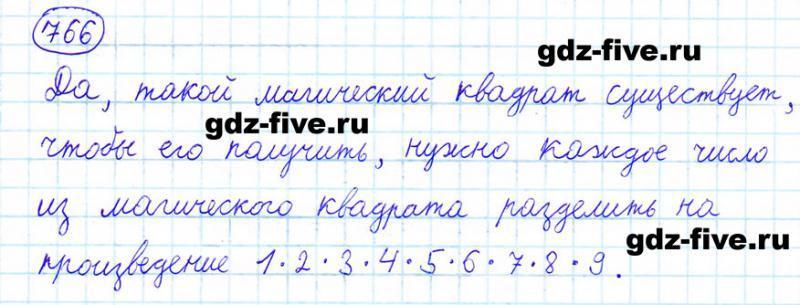 766
gdz-five.ru
Да, такой магический квадрат существует,
gdz-five.ru
чтобы его получить, нужно каждое число
из магического квадрата разделить на
gdz-five.ru
произведение 1·2·3·4·5·6·7·8·9.